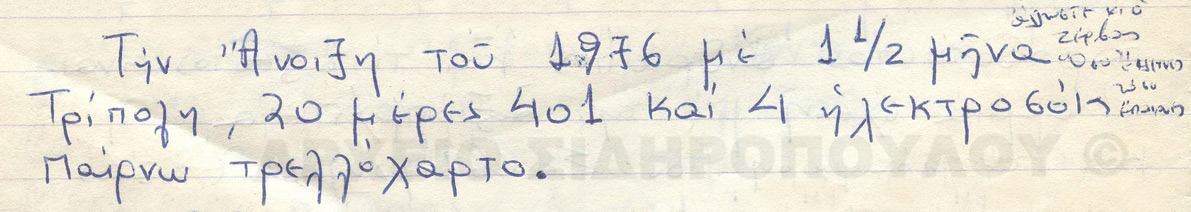 Τήν Ἄνοιξη τοῦ 1976 μέ 1 1/2 μῆνα
Τρίπολη, 20 μέρες 401 καί 4 ἠλεκτροσόκ
παίρνω τρελλόχαρτο.
ΑΡΧΕΙΟ ΣΙΔΗΡΟΠΟΥΛΟΥ ©